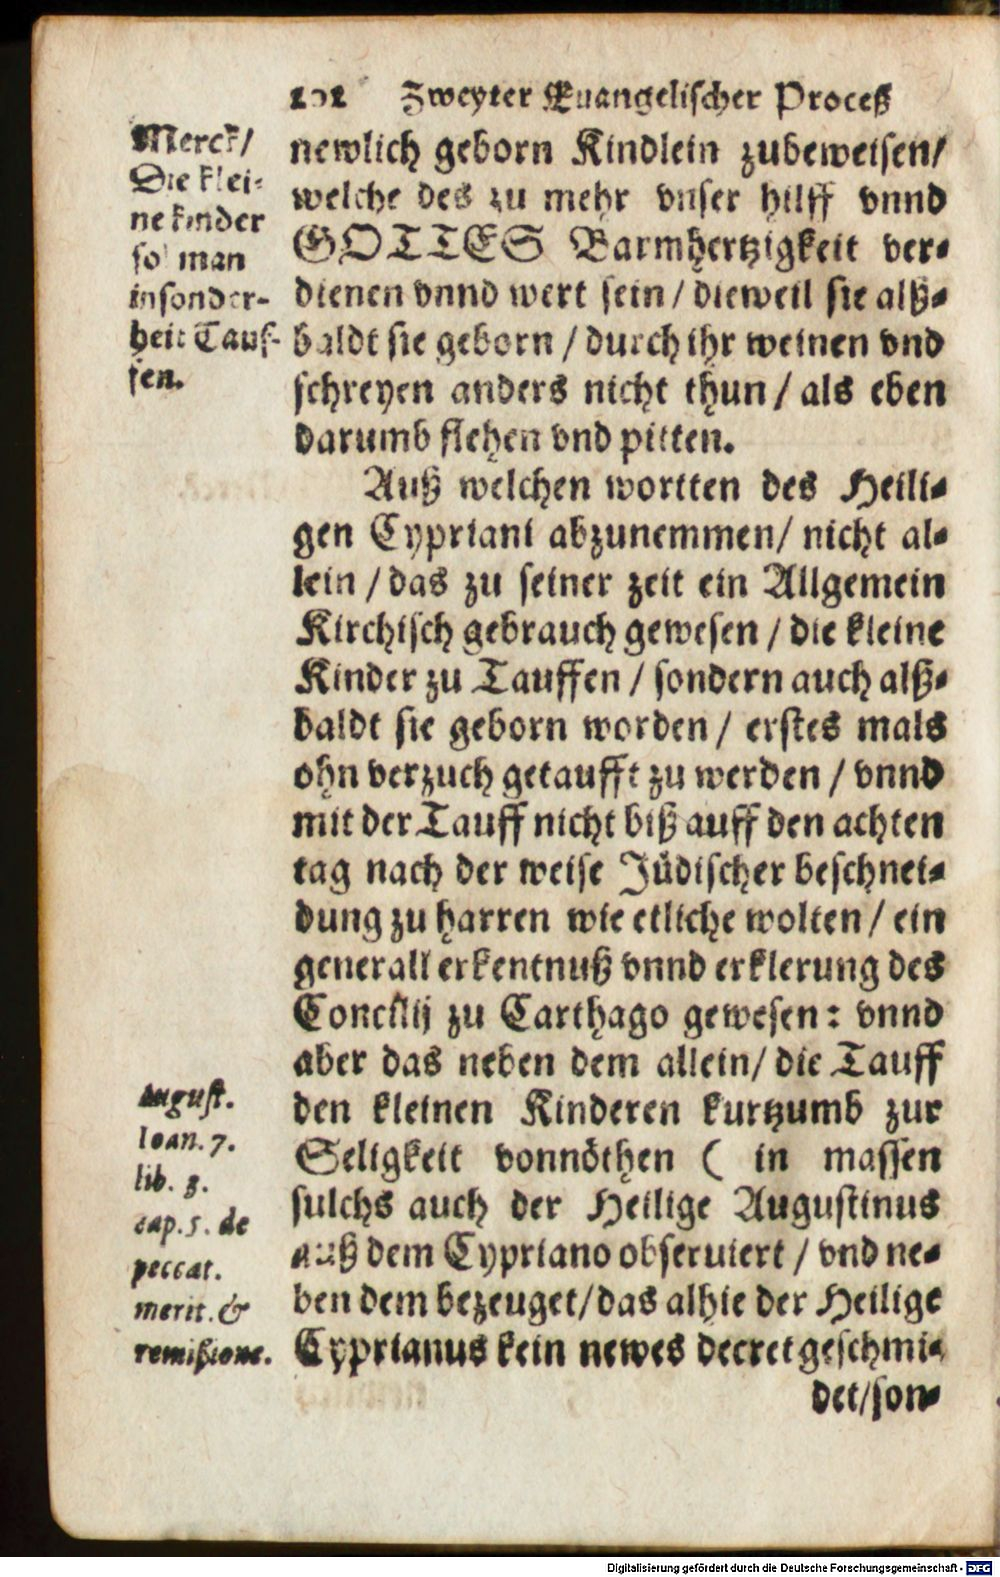 202 Zweyter Euangelischer Proceß
Merck/
Die klei-
ne kinder
so man
insonder-
heit Tauf-
fen.
newlich geborn Kindlein zubeweisen/
welche des zu mehr vnser hilff vnnd
GOTTES Barmhertzigkeit ver-
dienen vnnd wert sein / dieweil sie alß-
baldt sie geborn / durch ihr weinen vnd
schreyen anders nicht thun / als eben
darumb flehen vnd pitten.
Auß welchen wortten des Heili-
gen Cypriani abzunemmen/ nicht al-
lein / das zu seiner zeit ein Allgemein
Kirchisch gebrauch gewesen / die kleine
Kinder zu Tauffen / sondern auch alß-
baldt sie geborn worden / erstes mals
ohn verzuch getaufft zu werden / vnnd
mit der Tauff nicht biß auff den achten
tag nach der weise Jüdischer beschnei-
dung zu harren wie etliche wolten / ein
generall erkentnuß vnnd erklerung des
Concilij zu Carthago gewesen: vnnd
aber das neben dem allein/ die Tauff
den kleinen Kinderen kurtzumb zur
Seligkeit vonnöthen ( in massen
sulchs auch der Heilige Augustinus
auß dem Cypriano obseruiert / vnd ne-
ben dem bezeuget/das alhie der Heilige
Cyprianus kein newes decret geschmi-
det/son-
August.
Ioan. 7.
lib. 3.
cap. 5. de
peccat.
merit. &
remißione.
Digitalisierung gefördert durch die Deutsche Forschungsgemeinschaft - DFG